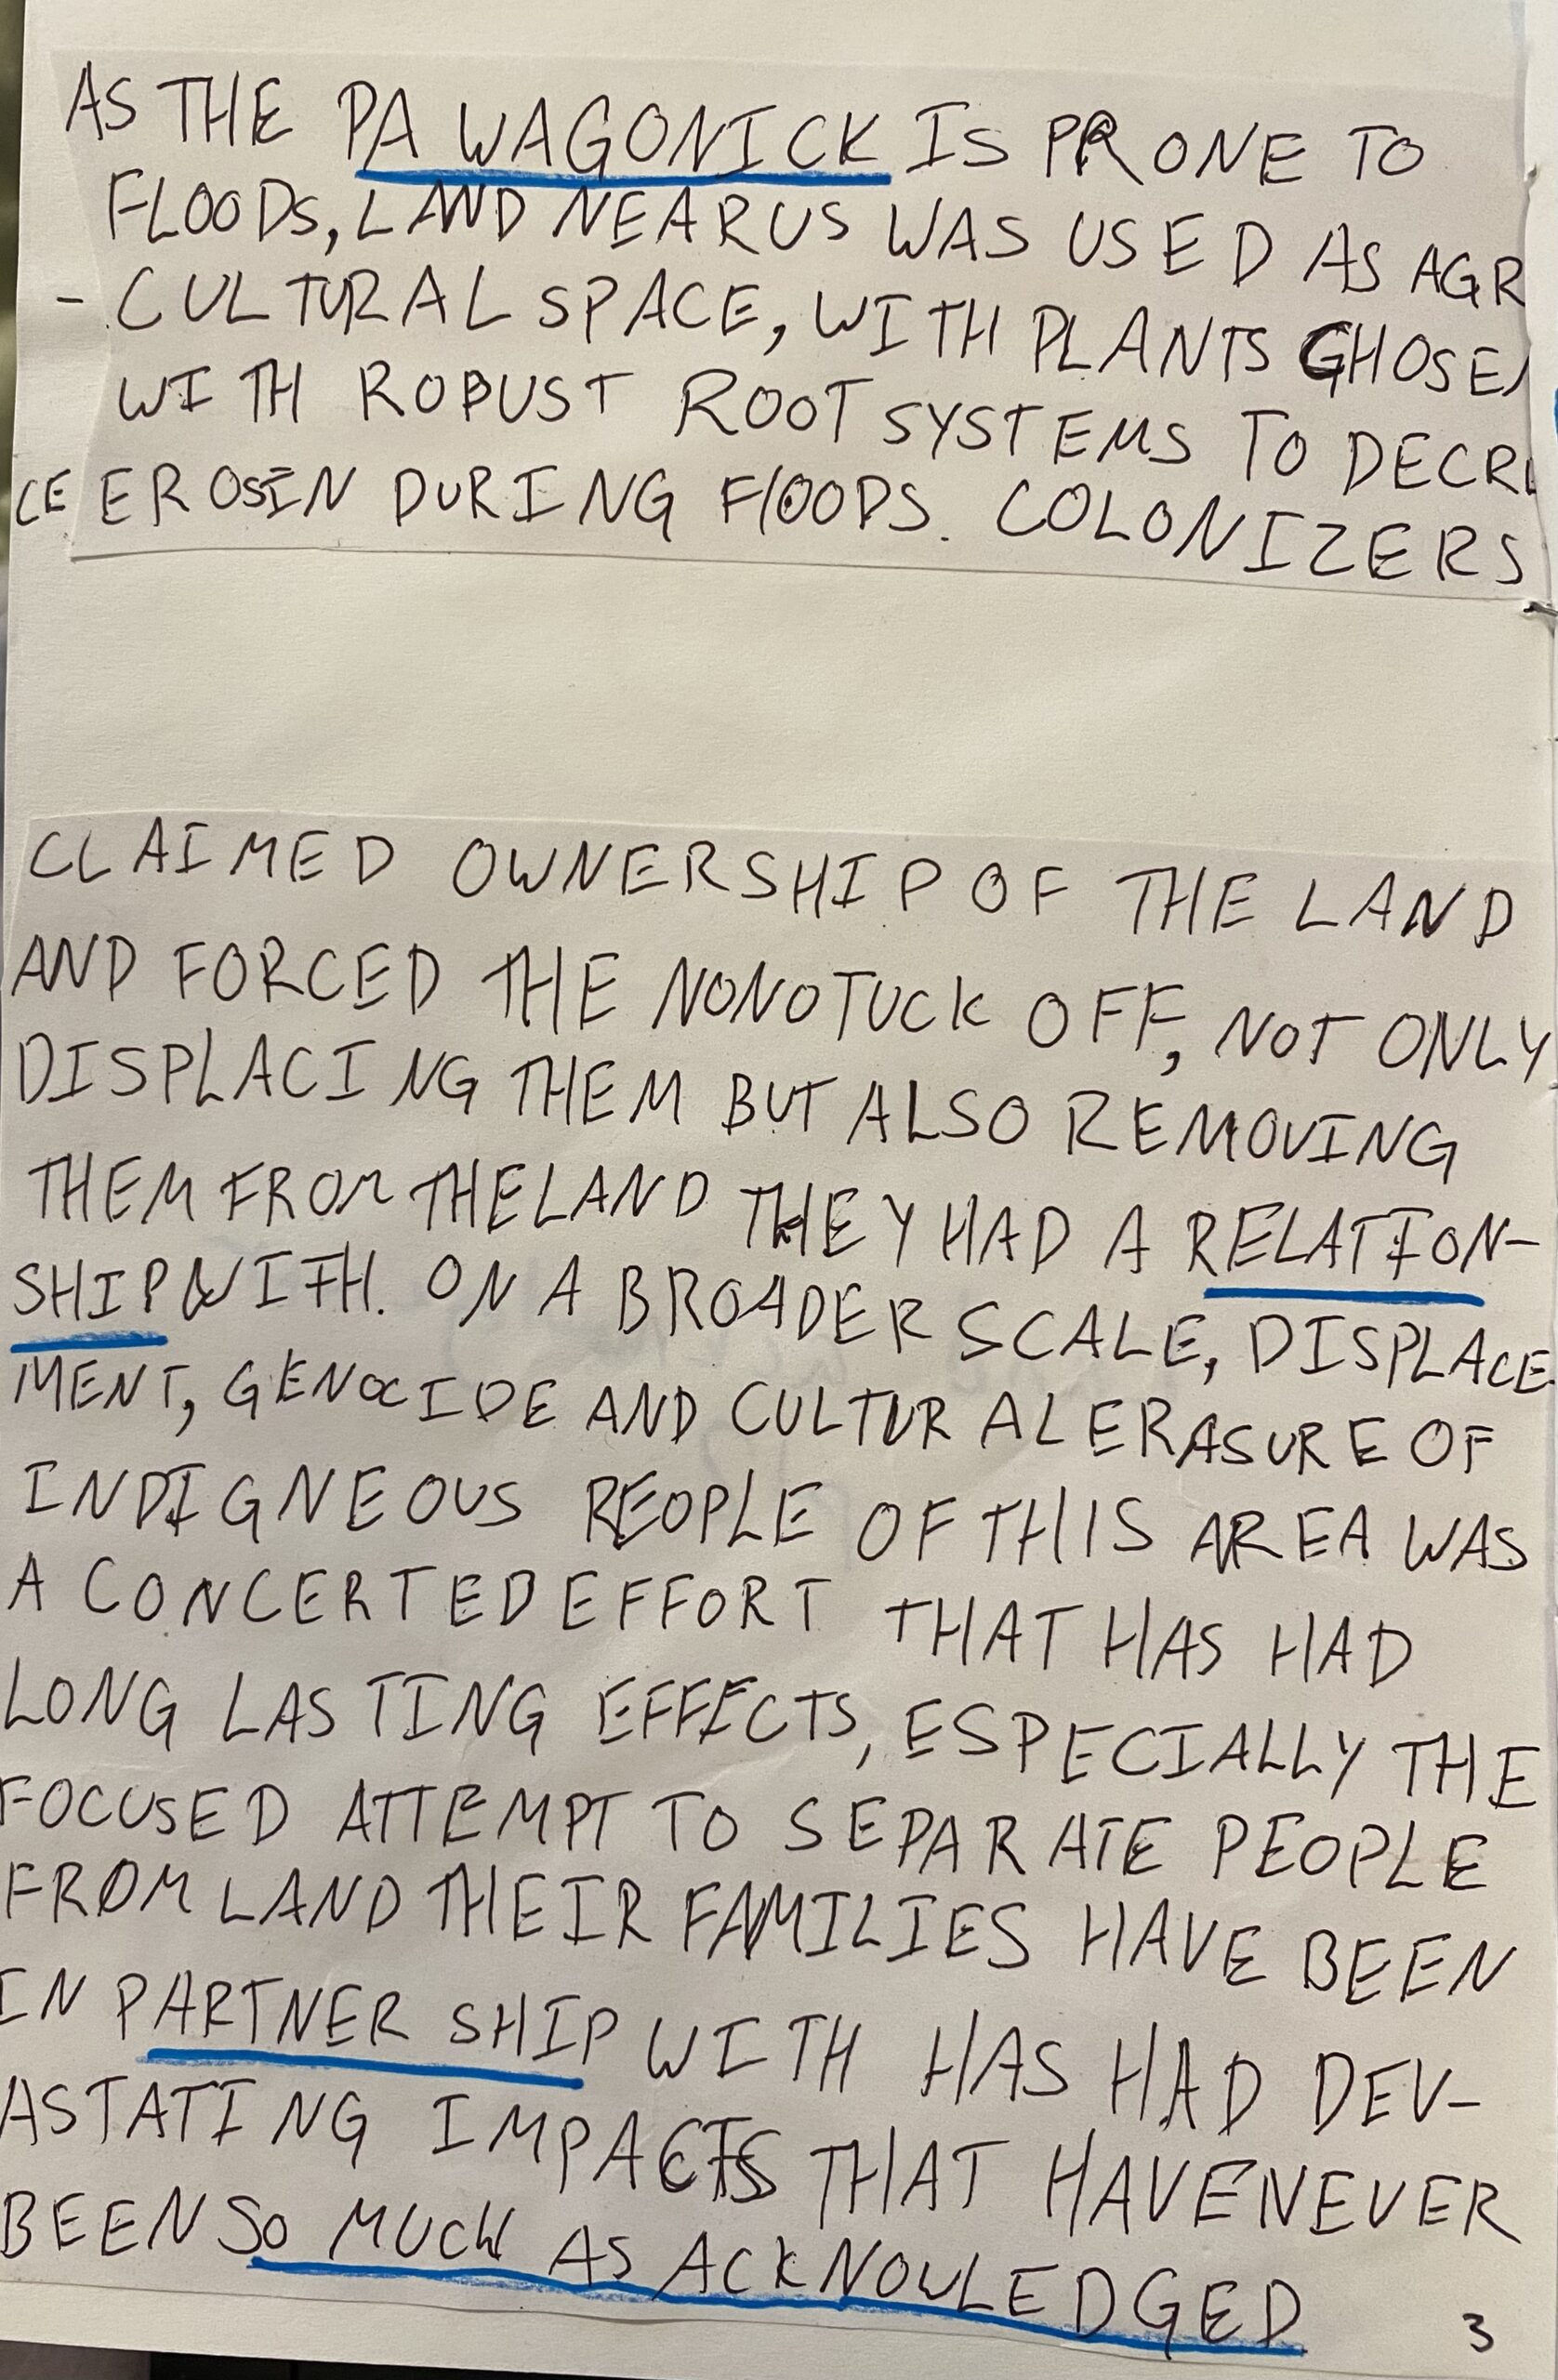 AS THE PA WAGONICK IS PRONE TO
FLOODS, LAND NEAR US WAS USED AS AGR
- CULTURAL SPACE, WITH PLANTS CHOSEN
WITH ROBUST ROOT SYSTEMS TO DECRE
CE EROSIN DURING FLOODS. COLONIZERS
CLAIMED OWNERSHIP OF THE LAND
AND FORCED THE NONOTUCK OFF, NOT ONLY
DISPLACING THEM BUT ALSO REMOVING
THEM FROM THE LAND THEY HAD A RELATION-
SHIP WITH. ON A BROADER SCALE, DISPLACE-
MENT, GENOCIDE AND CULTURAL ERASURE OF
INDIGNEOUS PEOPLE OF THIS AREA WAS
A CONCERTED EFFORT THAT HAS HAD
LONG LASTING EFFECTS, ESPECIALLY THE
FOCUSED ATTEMPT TO SEPARATE PEOPLE
FROM LAND THEIR FAMILIES HAVE BEEN
IN PARTNER SHIP WITH HAS HAD DEV-
ASTATING IMPACTS THAT HAVE NEVER
BEEN SO MUCH AS ACKNOWLEDGED
3